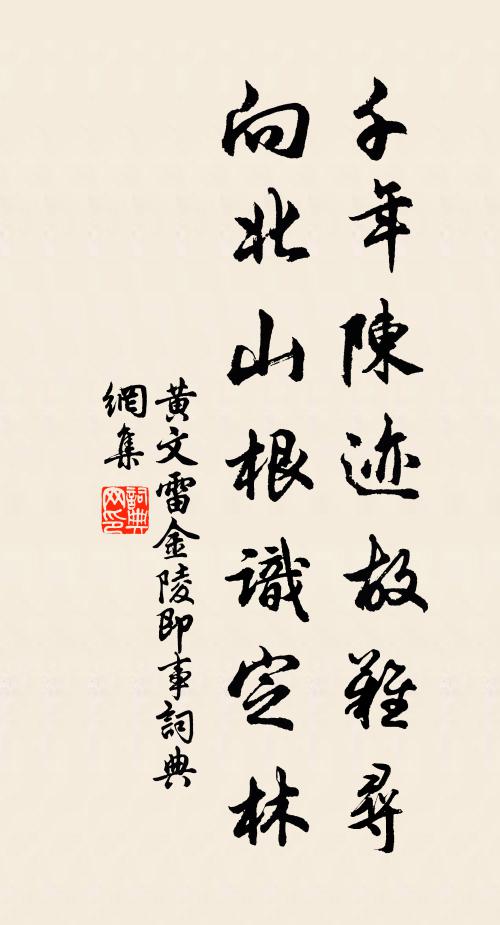 千年陳迹故難尋
向北山根識定林
黃文雷金陵即事詞典
網集
詞典網印